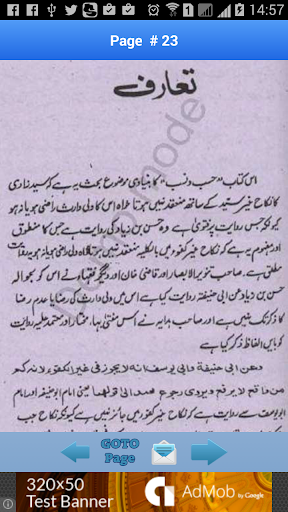 14:57
Page # 23
تعارف
اس کتاب "حسب و نسب" کا بنیادی موضوع بحث یہ ہے کہ سید زادی
کا نکاح غیر سید کے ساتھ منعقد نہیں ہوتا خواہ اس کا ولی وارث راضی ہو یا نہ ہو
کیونکہ حسن روایت پر فتویٰ ہے وہ حسن بن زیاد کی روایت ہے جس کا منطوق
اور مفہوم یہ ہے کہ نکاح غیر کفو میں بالکلیہ منعقد نہیں ہوتا ولی راضی ہو یا نہ روایت
مطلق ہے۔ صاحب تنویر الابصار اور قاضی خان اور دیگر فقہاء نے اس کو بحوالہ
حسن بن زیاد عن ابی حنیفة روایت کیا ہے اس میں ولی وارث کی رضا یا عدم رضا
کا ذکر تک نہیں ہے اور صاحب ہدایہ نے اس مفتی بہا، مختار اور معتمد علیہ روایت
کو بایں الفاظ ذکر کیا ہے
وعن ابی حنیفة وابی یوسف انه لا یجوز فی غیر الکفو لانه کم
من واقع لا یرفع ویروی رجوع محمد الی قولهما یعنی امام ابو حنیفہ اور امام
ابو یوسف سے روایت ہے کہ نکاح غیر کفو میں جائز نہیں ہے کیونکہ نکاح جب
Demo mode
GOTO
Page
320×50
Test Banner
AdMob by Google